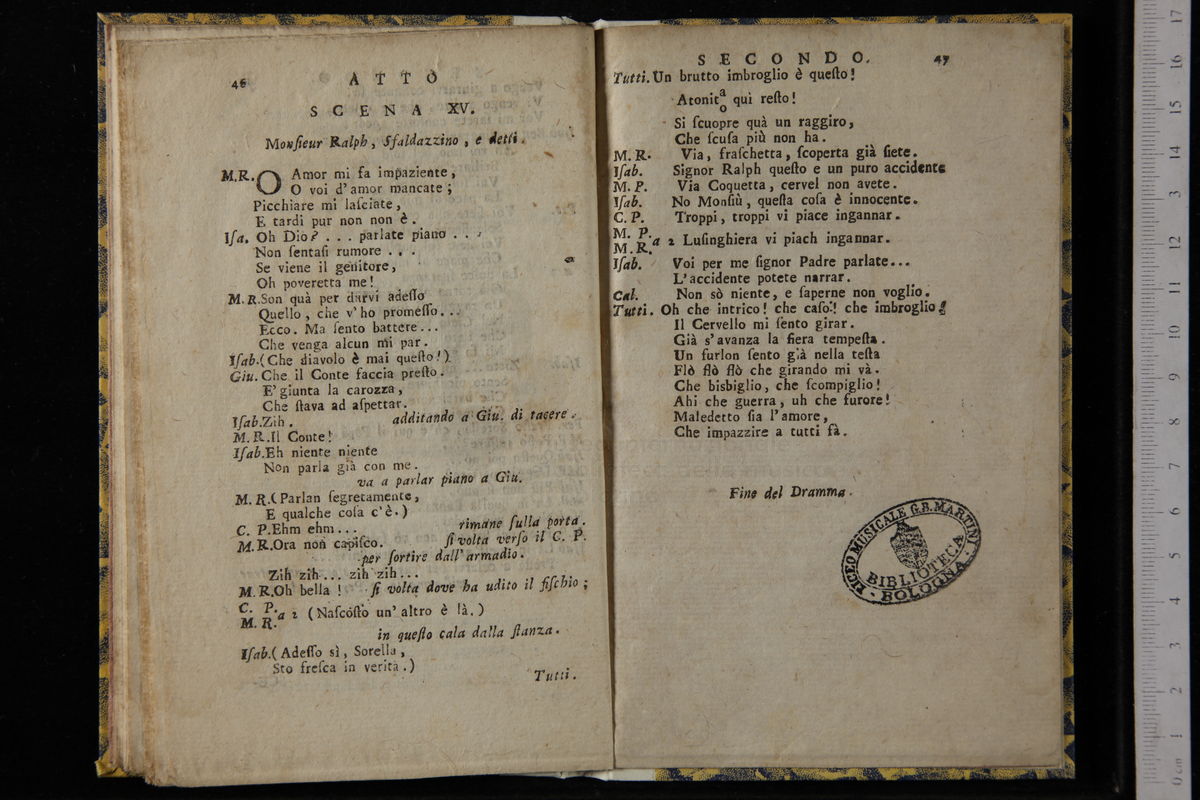 46 ATTO
SCENA XV.
Monſieur Ralph, Sfaldazzino, e detti.
M.R. O Amor mi fa impaziente,
O voi d'amor mancate;
Picchiare mi laſciate,
E tardi pur non non è.
Iſa. Oh Dio? . . . parlate piano . . .
Non ſentaſi rumore . . .
Se viene il genitore,
Oh poveretta me!
M.R. Son quà per darvi adeſſo
Quello, che v'ho promeſſo...
Ecco. Ma ſento battere...
Che venga alcun mi par.
Iſab. (Che diavolo è mai queſto!)
Giu. Che il Conte faccia preſto.
E' giunta la carozza,
Che ſtava ad aſpettar.
Iſab. Zih. additando a Giu. di tacere.
M.R. Il Conte!
Iſab. Eh niente niente
Non parla già con me.
va a parlar piano a Giu.
M.R. (Parlan ſegretamente,
E qualche coſa c'è.)
C. P. Ehm ehm... rimane ſulla porta.
M.R. Ora non capiſco. ſi volta verſo il C. P.
per ſortire dall'armadio.
Zih zih... zih zih...
M.R. Oh bella! ſi volta dove ha udito il fiſchio;
C. P.
M. R. a 2 (Naſcoſto un'altro è là.)
in queſto cala dalla ſtanza.
Iſab. (Adeſſo sì, Sorella,
Sto freſca in verità.)
Tutti.
SECONDO. 47
Tutti. Un brutto imbroglio è queſto!
Atonit a/o quì reſto!
Si ſcuopre quà un raggiro,
Che ſcuſa più non ha.
M. R. Via, fraſchetta, ſcoperta già ſiete.
Iſab. Signor Ralph queſto e un puro accidente
M. P. Via Coquetta, cervel non avete.
Iſab. No Monſiù, queſta coſa è innocente.
C. P. Troppi, troppi vi piace ingannar.
M. P.
M. R. a 2 Luſinghiera vi piach ingannar.
Iſab. Voi per me ſignor Padre parlate...
L'accidente potete narrar.
Cal. Non sò niente, e ſaperne non voglio.
Tutti. Oh che intrico! che caſo! che imbroglio!
Il Cervello mi ſento girar.
Già s'avanza la fiera tempeſta.
Un furlon ſento già nella teſta
Flò flò flò che girando mi và.
Che bisbiglio, che ſcompiglio!
Ahi che guerra, uh che furore!
Maledetto ſia l'amore,
Che impazzire a tutti fà.
Fine del Dramma.
LICEO MUSICALE G.B. MARTINI
BIBLIOTECA
BOLOGNA
17
16
15
14
13
12
11
10
9
8
7
6
5
4
3
2
1
0 cm